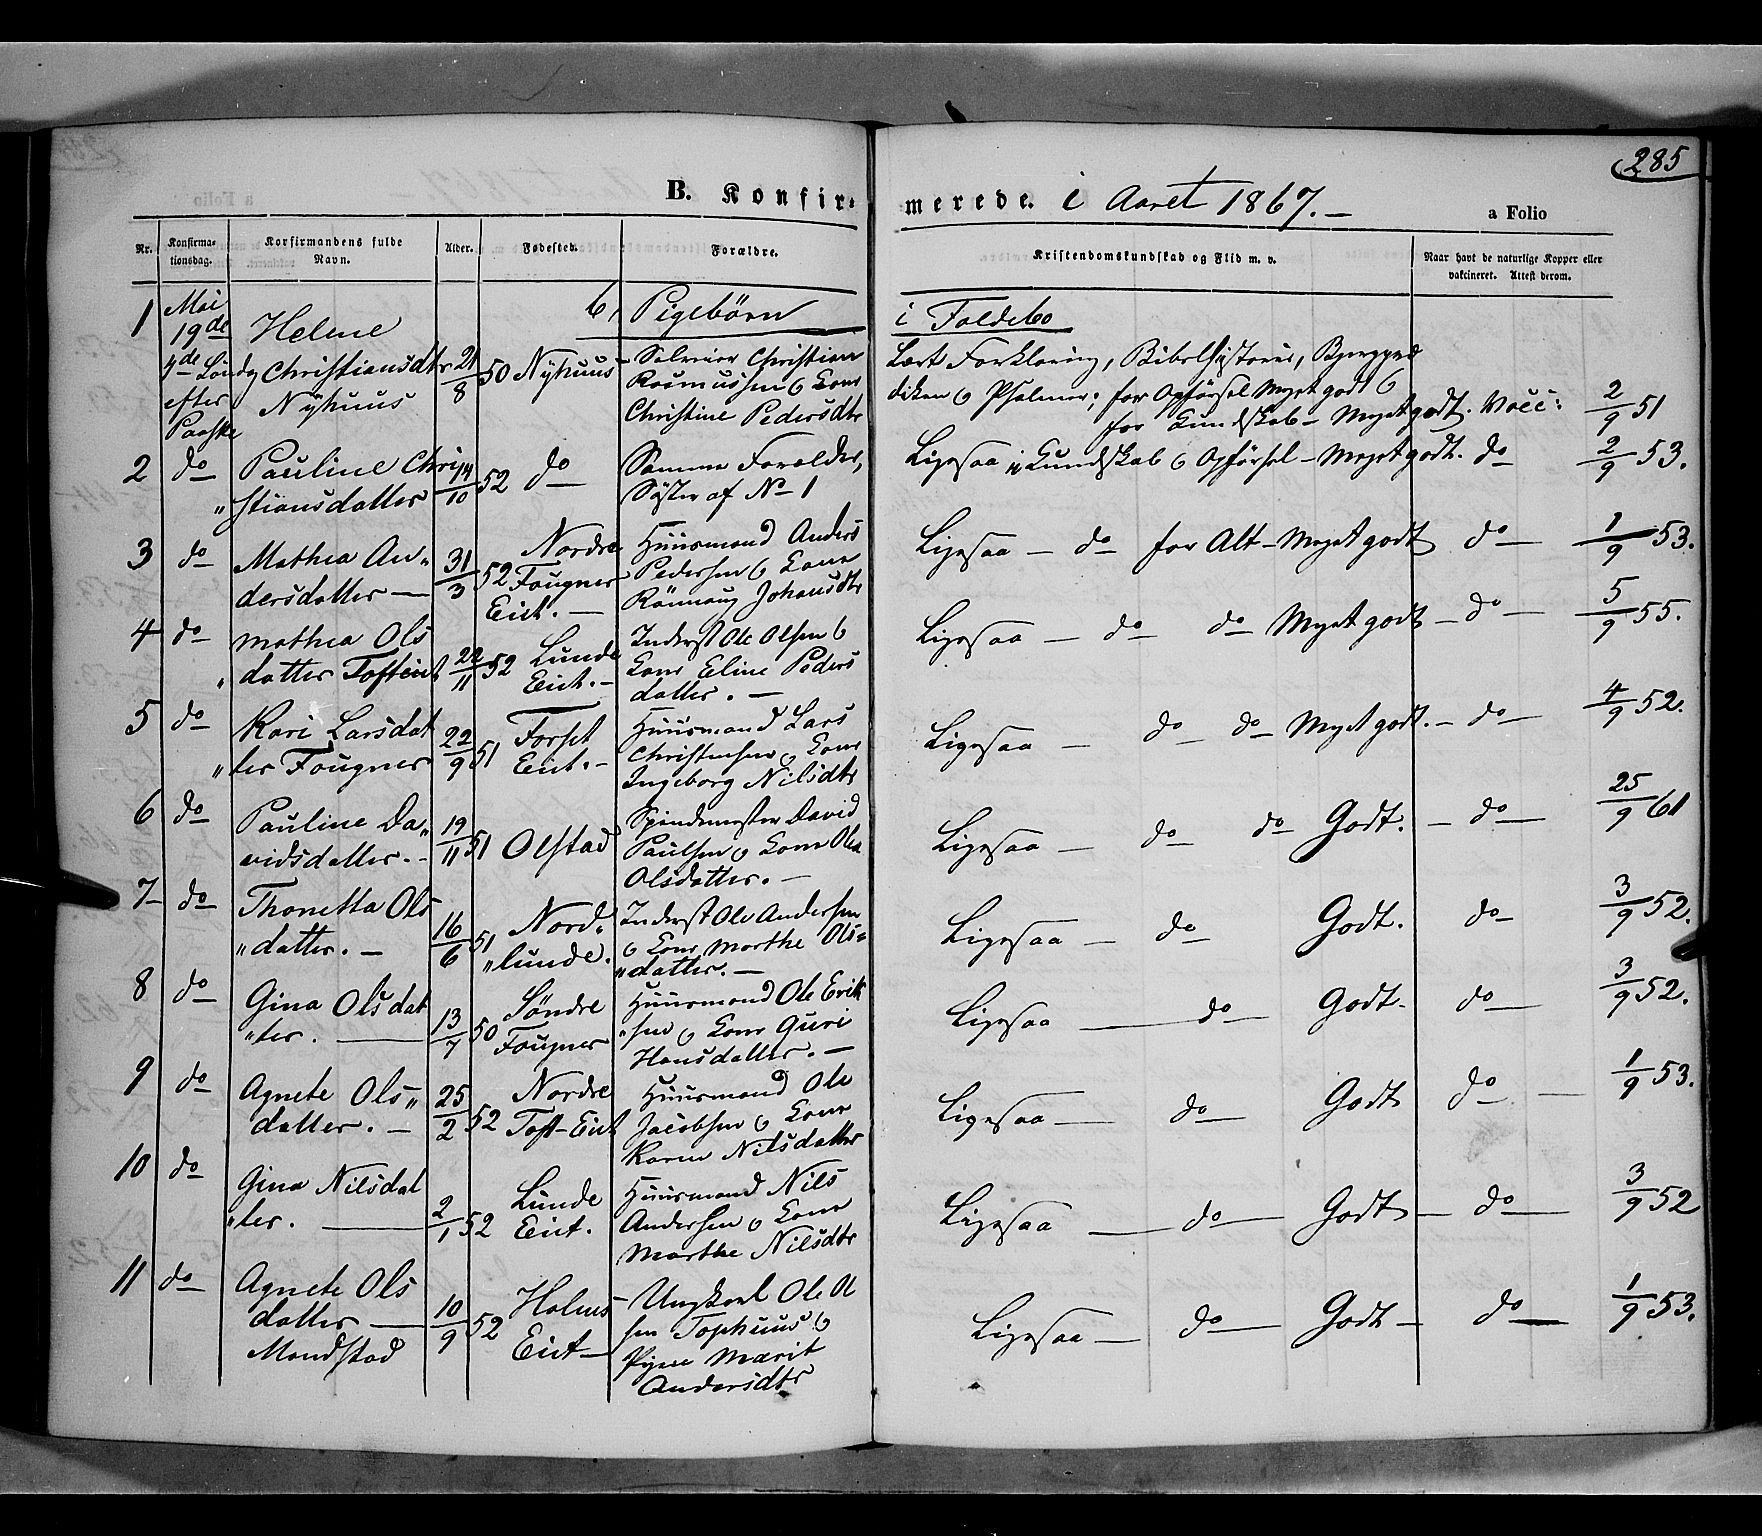 285
B. Konfir- merede. i Aaret 1867. —
a Folio
Nr. Konfirma-tionsdag. Konfirmandens fulde Navn. Alder. Fødested. Forældre. Kristendomskundskab og Flid m. v. Naar havt de naturlige Kopper eller vakcineret. Attest derom.
b, Pigebörn i Foldebo
1 Mai
19de
4de Sönd
efter
Paaske
Helene
Christiansdtr
Nÿhuus
21/8 50
Nÿhuus
Selveier Christian
Rasmussen & Kone
Christine Pedersdtr
Lært Forklaring, Bibelhistorie,
& Psalmer; for Opförsel Meget godt &
for Kundskab – Meget godt. Vacc: 2/9 51
2 do
Pauline Chri
„stiansdatter
14/10 52
do
Samme Forælder,
Söster af No 1
Ligesaa i Kundskab & Opförsel – Meget godt. do 2/9 53.
3 do
Mathea An„
dersdatter —
31/3 52
Nordre
Fougner
Eiet. —
Huusmand Anders
Pedersen & Kone
Rönnaug Johansdtr
Ligesaa — do for Alt – Meget godt do — 1/9 53.
4 do
Mathea Ols
„datter Tofteiet
22/11 52
Lunde
Eiet. –
Inderst Ole Olsen &
Kone Eline Peders
datter. —
Ligesaa — do do Meget godt – do — 5/9 55.
5 do
Kari Larsdat
„ter Fougner
22/9 51
Forset
Eiet. –
Huusmand Lars
Christensen & Kone
Ingeborg Nilsdtr
Ligesaa — do do Meget godt. – do — 4/9 52.
6 do
Pauline Da„
vidsdatter. –
19/11 51
Olstad
David
Paulsen & Kone Olea
Olsdatter. —
Ligesaa — do do Godt. – do — 25/9 61
7 do
Thonetta Ols
„datter. —
16/6 51
Nord„
„lunde.
Inderst Ole Andersen
& Kone Marthe Ols„
„datter. —
Ligesaa — do Godt. do 3/9 52.
8 do
Gina Olsdat
„ter. —
13/7 50
Söndre
Fougner
Huusmand Ole Erik
„sen & Kone Guri
Hansdatter. —
Ligesaa — do — Godt – do — 3/9 52.
9 do
Agnete Ols„
datter. —
25/2 52
Nordre
Toft-Eiet
Huusmand Ole
Jacobsen & Kone
Karen Nilsdatter
Ligesaa — do — Godt do — 1/9 53.
10 do
Gina Nilsdat
„ter. —
2/1 52
Lunde
Eiet.
Huusmand Nils
Andersen & Kone
Marthe Nilsdtr
Ligesaa — do — Godt – do — 3/9 52
11 do
Agnete Ols
datter —
Mandstad
10/9 52
Holms
Eiet —
Ungkarl Ole Ol
sen Tophuus &
Pigen Marit
Andersdtr
Ligesaa — do — Godt – do — 1/9 53.